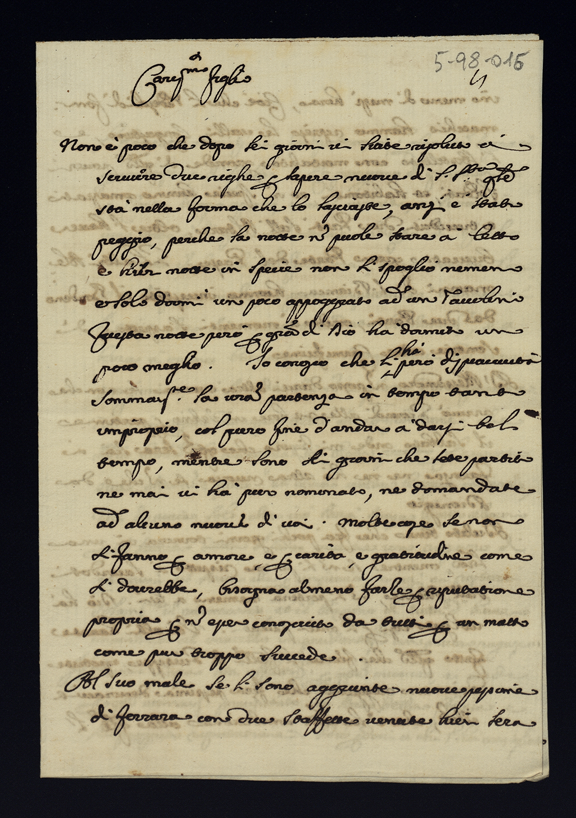 5-98-015
Caris.mo figlio
Non è poco che dopo sei giorni vi siate risoluto di
scrivere due righe p sapere nuove di S. Ecc.za
stà nella forma che lo lasciaste, anzi è stato
peggio, perche la notte nò puole stare à letto
e hieri notte in specie non si spogliò nemeno
e solo dormì un poco appoggiato ad un Tavolino
questa notte però p gra di Dio ha dormito un
poco meglio. Io conosco che li hà però dispiaciuto
la vra partenza in tempo tanto
improprio, col puro fine d'andar à darsi bel
tempo, mentre sono sei giorni che sete partito
ne mai vi hà pur nominato, ne domandato
ad alcuno nuove di voi. Molte cose se non
si fanno p amore, e p carità, e gratitudine come
si dovrebbe, bisogna almeno farle p riputatione
propria p nò esser conosciuto da tutti p un matto
come pur troppo succede.
Al suo male se li sono aggiunte nuove
di ferrara con due staffette venute hieri sera